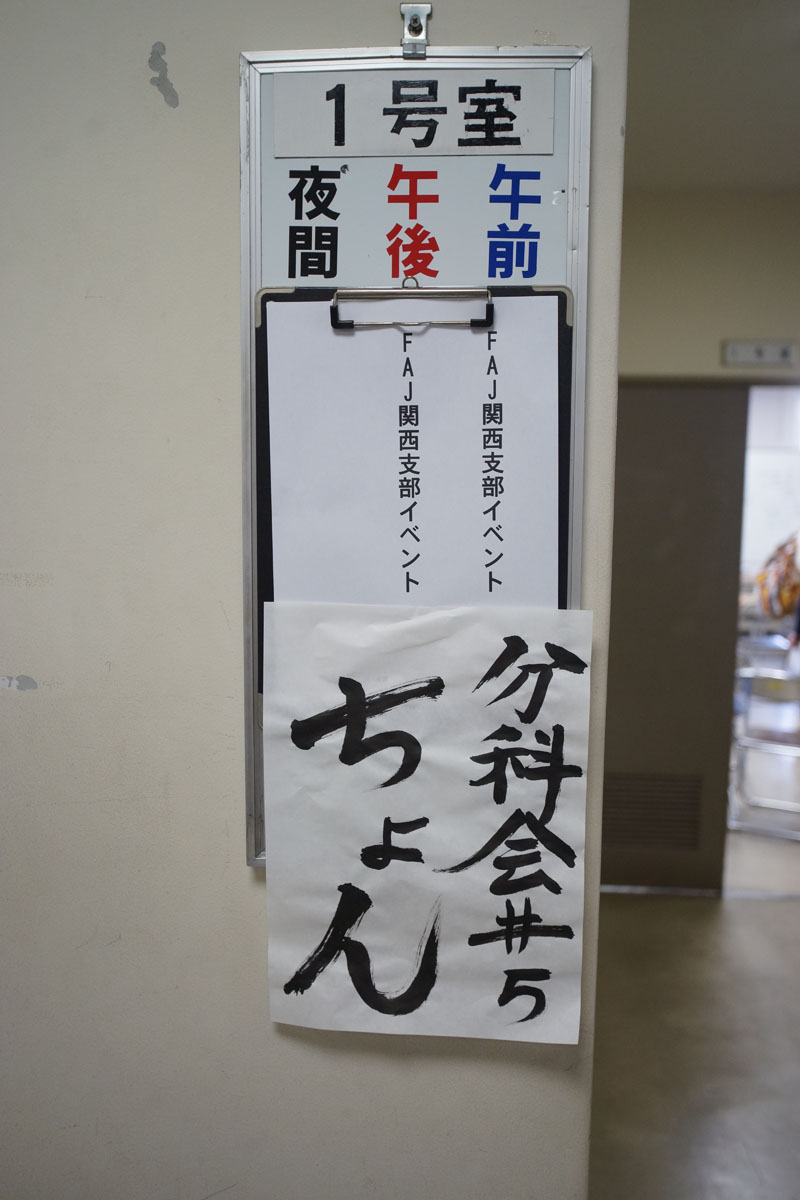 1号室
午前
午後
夜間
FAJ関西支部イベント
FAJ関西支部イベント
分科会#5
ちょん